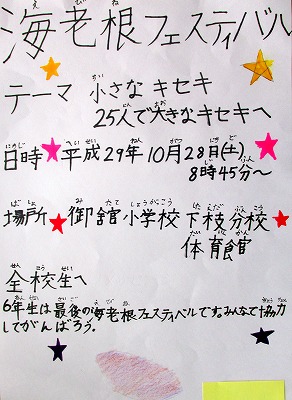 海老根フェスティバル
テーマ 小さなキセキ
25人で大きなキセキへ
日時★平成29年10月28日(土)
8時45分～
場所★御舘小学校下枝分校
体育館
全校生へ
6年生は最後の海老根フェスティバルですみんなで協力
してがんばろう。